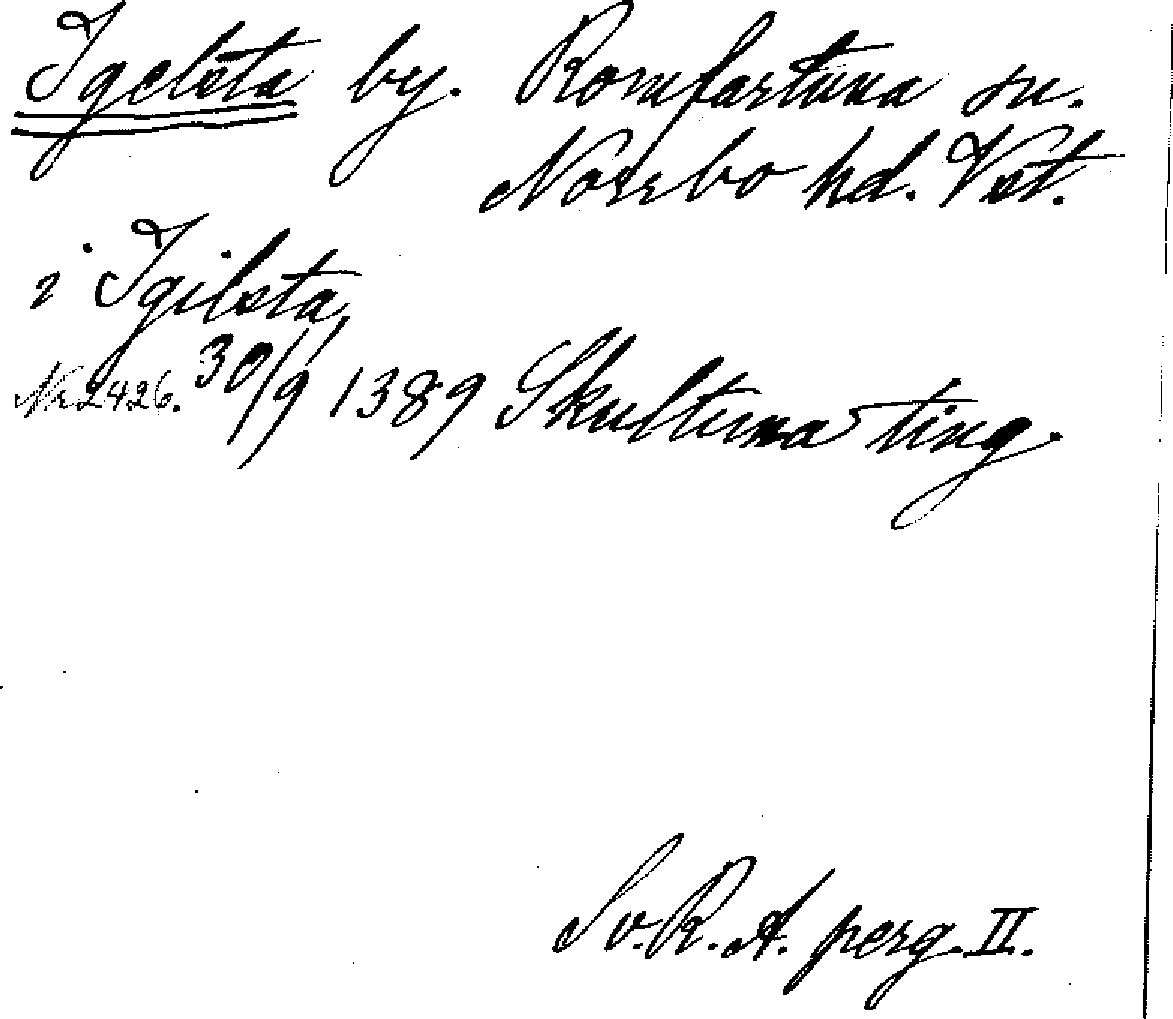 Igelsta by. Romfartuna sn.
Norrbo hd. Vst.
i Igilsta,
Nr 2426. 30/9 1389 Skultuna ting.
Sv. R. A. perg. II.